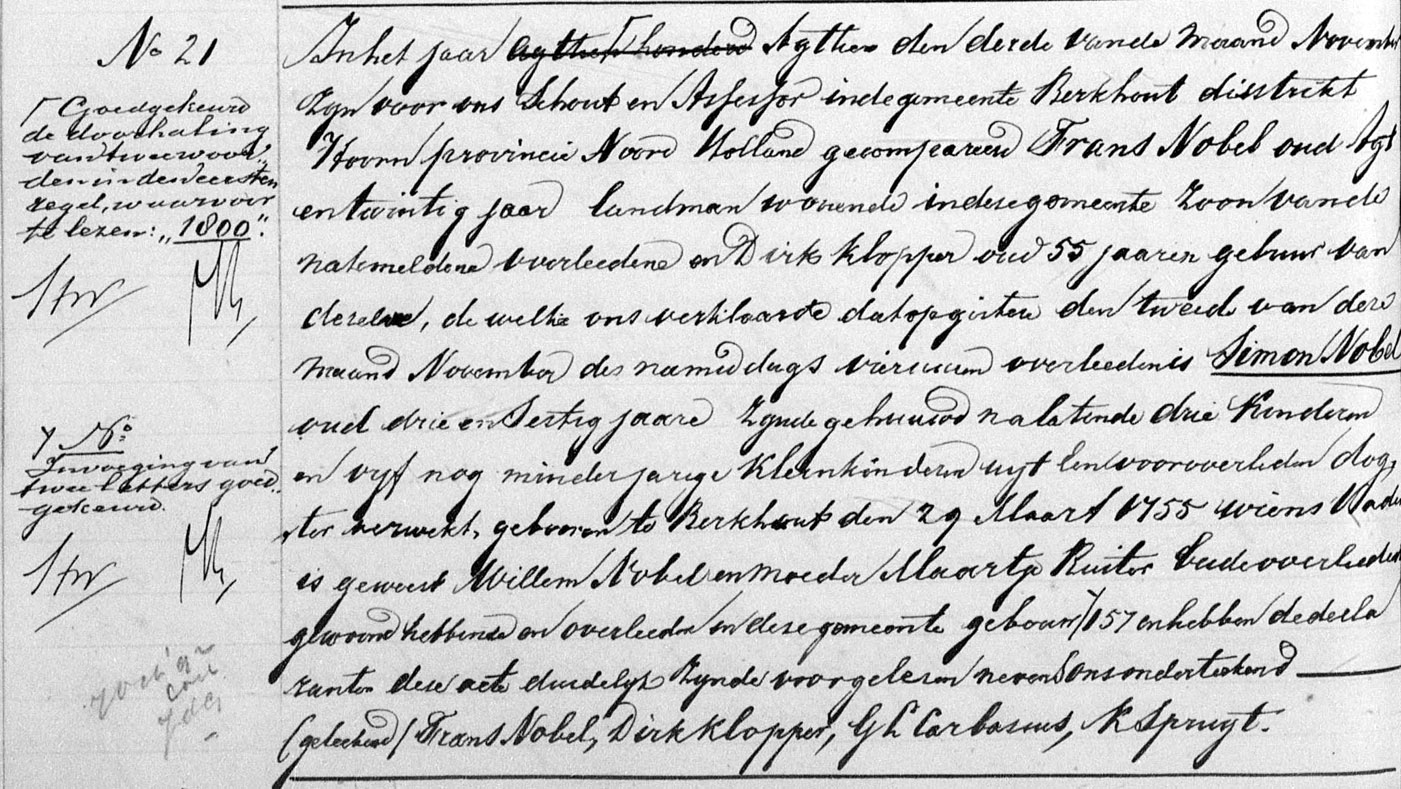 No 21
In het jaar agthien honderd Agtien den derde van de maand November
Zyn voor ons Schout en Assessor in de gemeente Berkhout distrikt
Hoorn provincie Noord Holland gecompareerd Frans Nobel oud Agt
en twintig jaar landman wonende in dese gemeente Zoon van de
natemeldene overleedene en Dirk Klopper oud 55 jaaren gebuur van
deselve, de welke ons verklaarde dat op gisteren den tweede van deze
maand November des namiddags vier uuren overleeden is Simon Nobel
oud drie en Sestig jaare Zynde gehuuwd nalatende drie Kinderen
en vyf nog minderjarige Kleinkinderen uyt een vooroverleden dog,
ter verwekt, gebooren te Berkhout den 29 Maart 1755 wiens Vader
is geweest Willem Nobel en moeder Maartje Ruiter beide overleeden
gewoond hebbende en overleeden in dese gemeente gebouw 157 en hebben de decla
ranten dese acte duidelyk Zynde voorgelesen nevens ons onderteekend
(geteekend) Frans Nobel, Dirk Klopper, Gl Carbasius, K Spruyt.
Goedgekeurd
de doorhaling
van twee woor,,
den in den eersten
regel, waarvoor
te lezen: „1800".
No
Invoeging van
twee letters goed,
gekeurd.